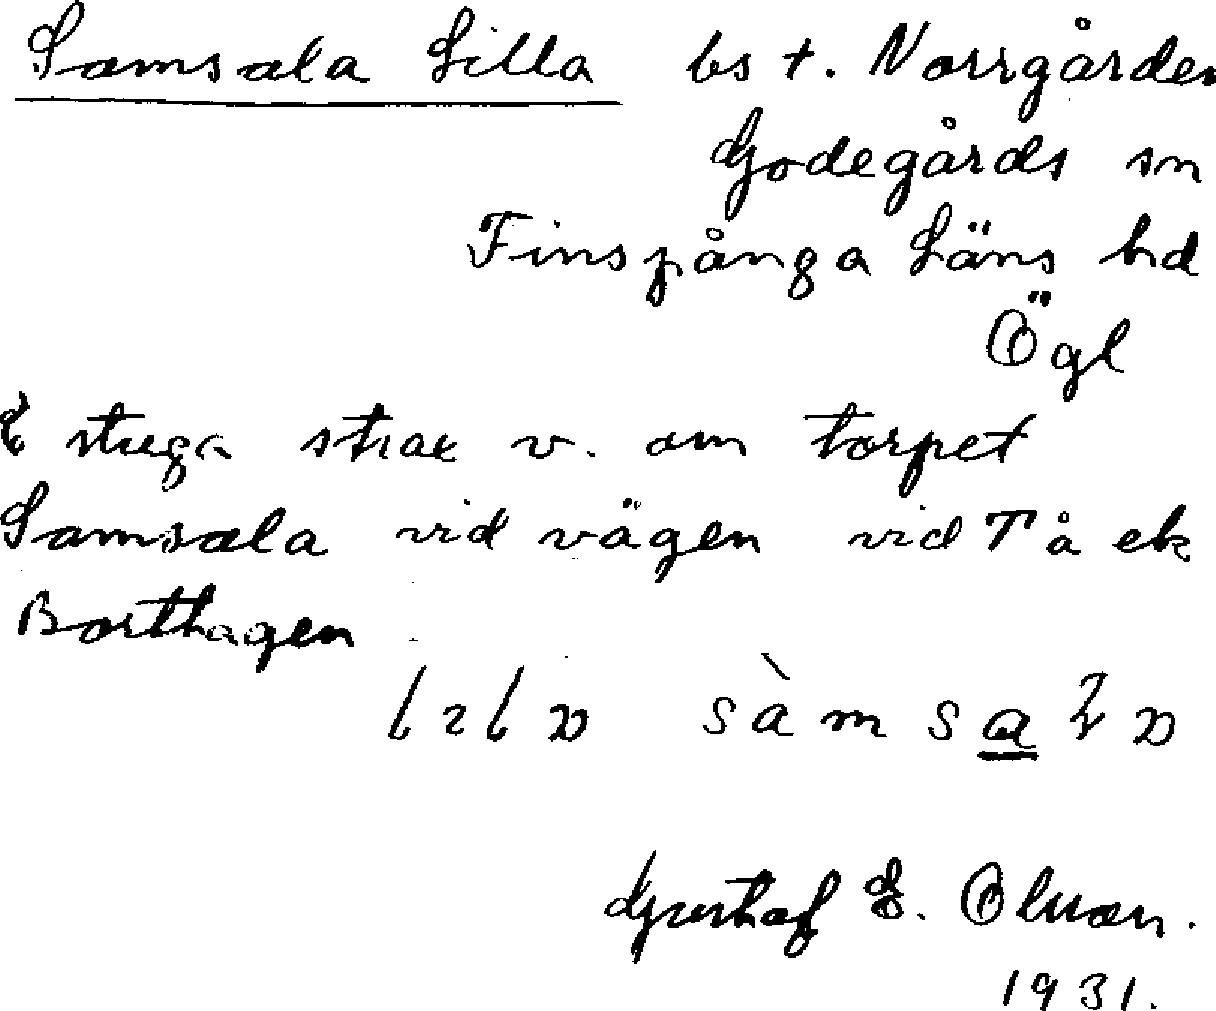 Samsala Lilla bs t. Norrgården
Godegårds sn
Finspånga Läns hd
Ögl
stuga strax v. om torpet
Samsala vid vägen vid T å ek
Borthagen
sàmsa
Gusthaf E. Olsson.
1931.